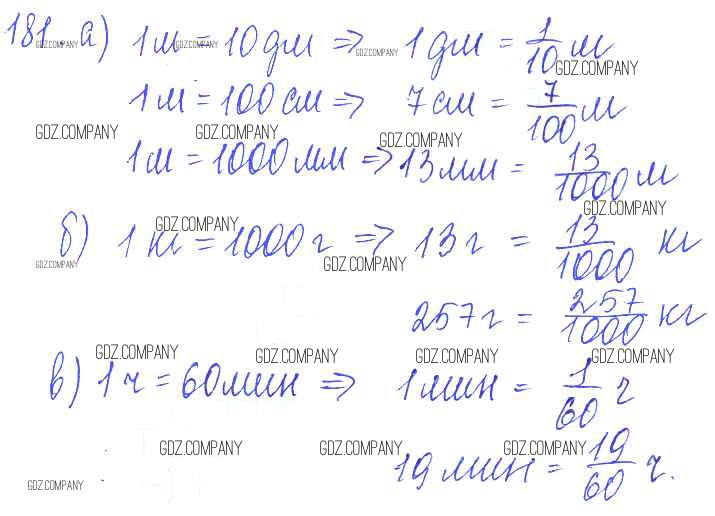 181. а) 1 м = 10 дм => 1 дм = 1/10 м
1 м = 100 см => 7 см = 7/100 м
1 м = 1000 мм => 13 мм = 13/1000 м
б) 1 кг = 1000 г => 13 г = 13/1000 кг
257 г = 257/1000 кг
в) 1 ч = 60 мин => 1 мин = 1/60 ч
19 мин = 19/60 ч.
GDZ.COMPANY GDZ.COMPANY GDZ.COMPANY
GDZ.COMPANY
GDZ.COMPANY GDZ.COMPANY GDZ.COMPANY
GDZ.COMPANY
GDZ.COMPANY
GDZ.COMPANY GDZ.COMPANY
GDZ.COMPANY GDZ.COMPANY GDZ.COMPANY GDZ.COMPANY
GDZ.COMPANY GDZ.COMPANY GDZ.COMPANY
GDZ.COMPANY